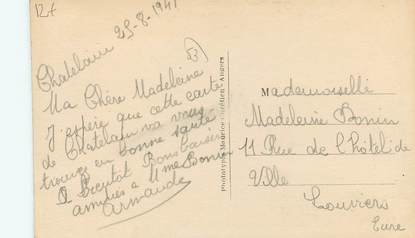 12f
Chatelain 29-8-1941
53
Ma Chère Madeleine
J'espère que cette carte
de Chatelain va vous
trouver en bonne santé
A Bientôt Bons baisers
amitiés à Mme Bonin
Armande
Phototypie Angers
Mademoiselle
Madeleine Bonin
11 Rue de l'hôtel de
Ville
Louviers
Eure